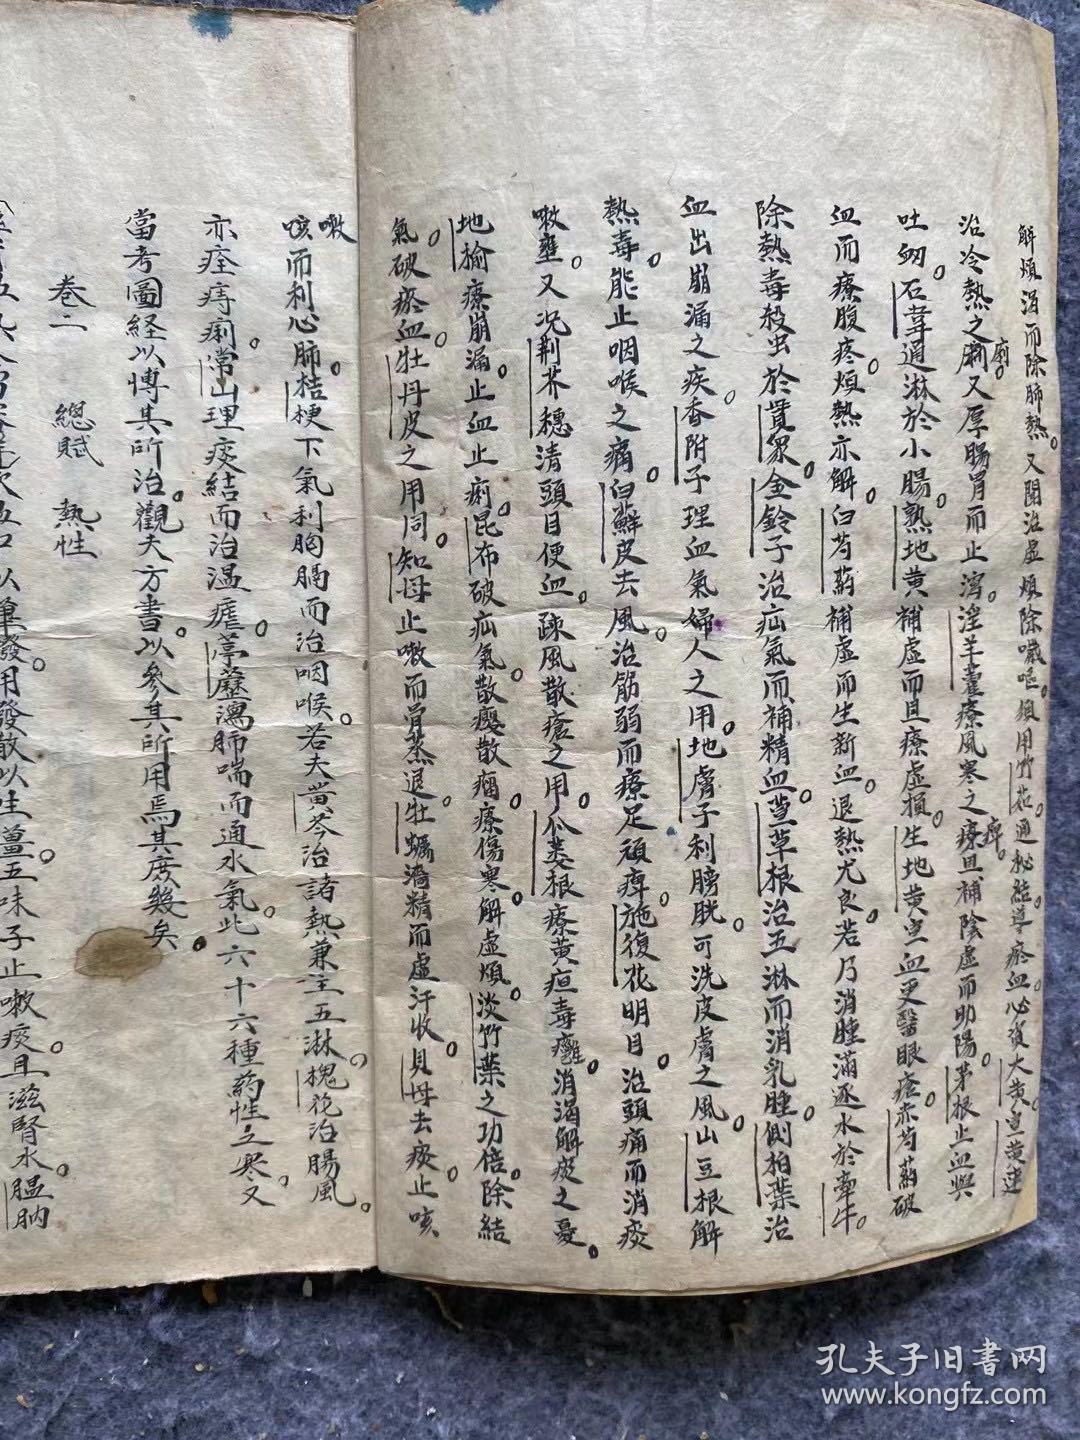 解煩渴而除肺熱。又聞治虛煩除噦嘔。須用竹茹。通秘結導瘀血。必資大黃。宣黃連
治冷熱之痢。又厚腸胃而止瀉。淫羊藿療風寒之痺。且補陰虛而助陽。茅根止血與
吐衂。石葦通淋於小腸。熟地黃補虛而且療虛損。生地黃宣血更醫眼瘡。赤芍葯破
血而療腹疼。煩熱亦解。白芍葯補虛而生新血。退熱尤良。若乃消腫滿逐水於牽牛。
除熱毒殺虫於貫眾。金鈴子治疝氣而補精血。萱草根治五淋而消乳腫。側柏葉治
血出崩漏之疾。香附子理血氣婦人之用。地膚子利膀胱。可洗皮膚之風。山豆根解
熱毒。能止咽喉之痛。白蘚皮去風。治筋弱而療足頑痺。施復花明目。治頭痛而消痰
嗽壅。又況荆芥穗清頭目便血。疎風散瘡之用。瓜蒌根療黃疸毒癰。消渴解痰之憂。
地榆療崩漏。止血止痢。昆布破疝氣。散癭散瘤。療傷寒。解虛煩。淡竹葉之功倍。除結
氣。破瘀血。牡丹皮之用同。知母止嗽而骨蒸退。牡蠣濇精而虛汗收。貝母去痰。止咳
嗽
咳而利心肺。桔梗下氣利胸膈而治咽喉。若夫黃芩治諸熱。兼主五淋。槐花治腸風。
亦痊痔痢。常山理痰結而治温瘧。葶藶瀉肺喘而通水氣。此六十六種药性之寒。又
當考圖經以博其所治。觀夫方書。以參其所用焉。其庶幾矣。
卷二　總賦　熱性
發用發散以生薑。五味子止嗽痰。且滋腎水。膃肭
孔夫子旧书网
www.kongfz.com